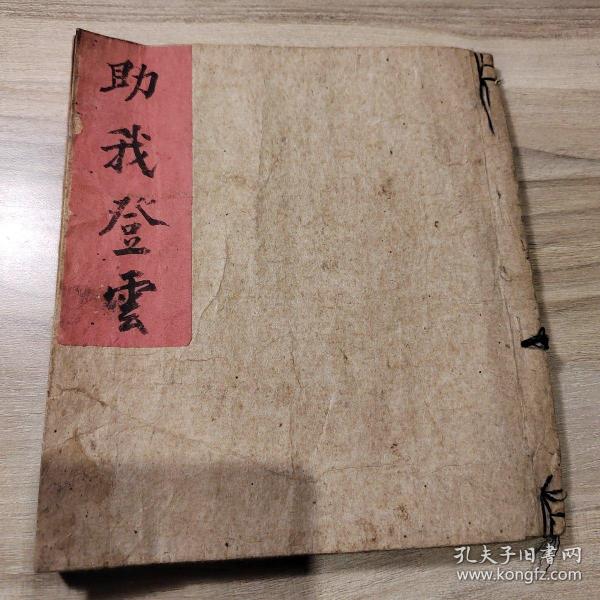 助我登雲
孔夫子旧書网
www.kongfz.com